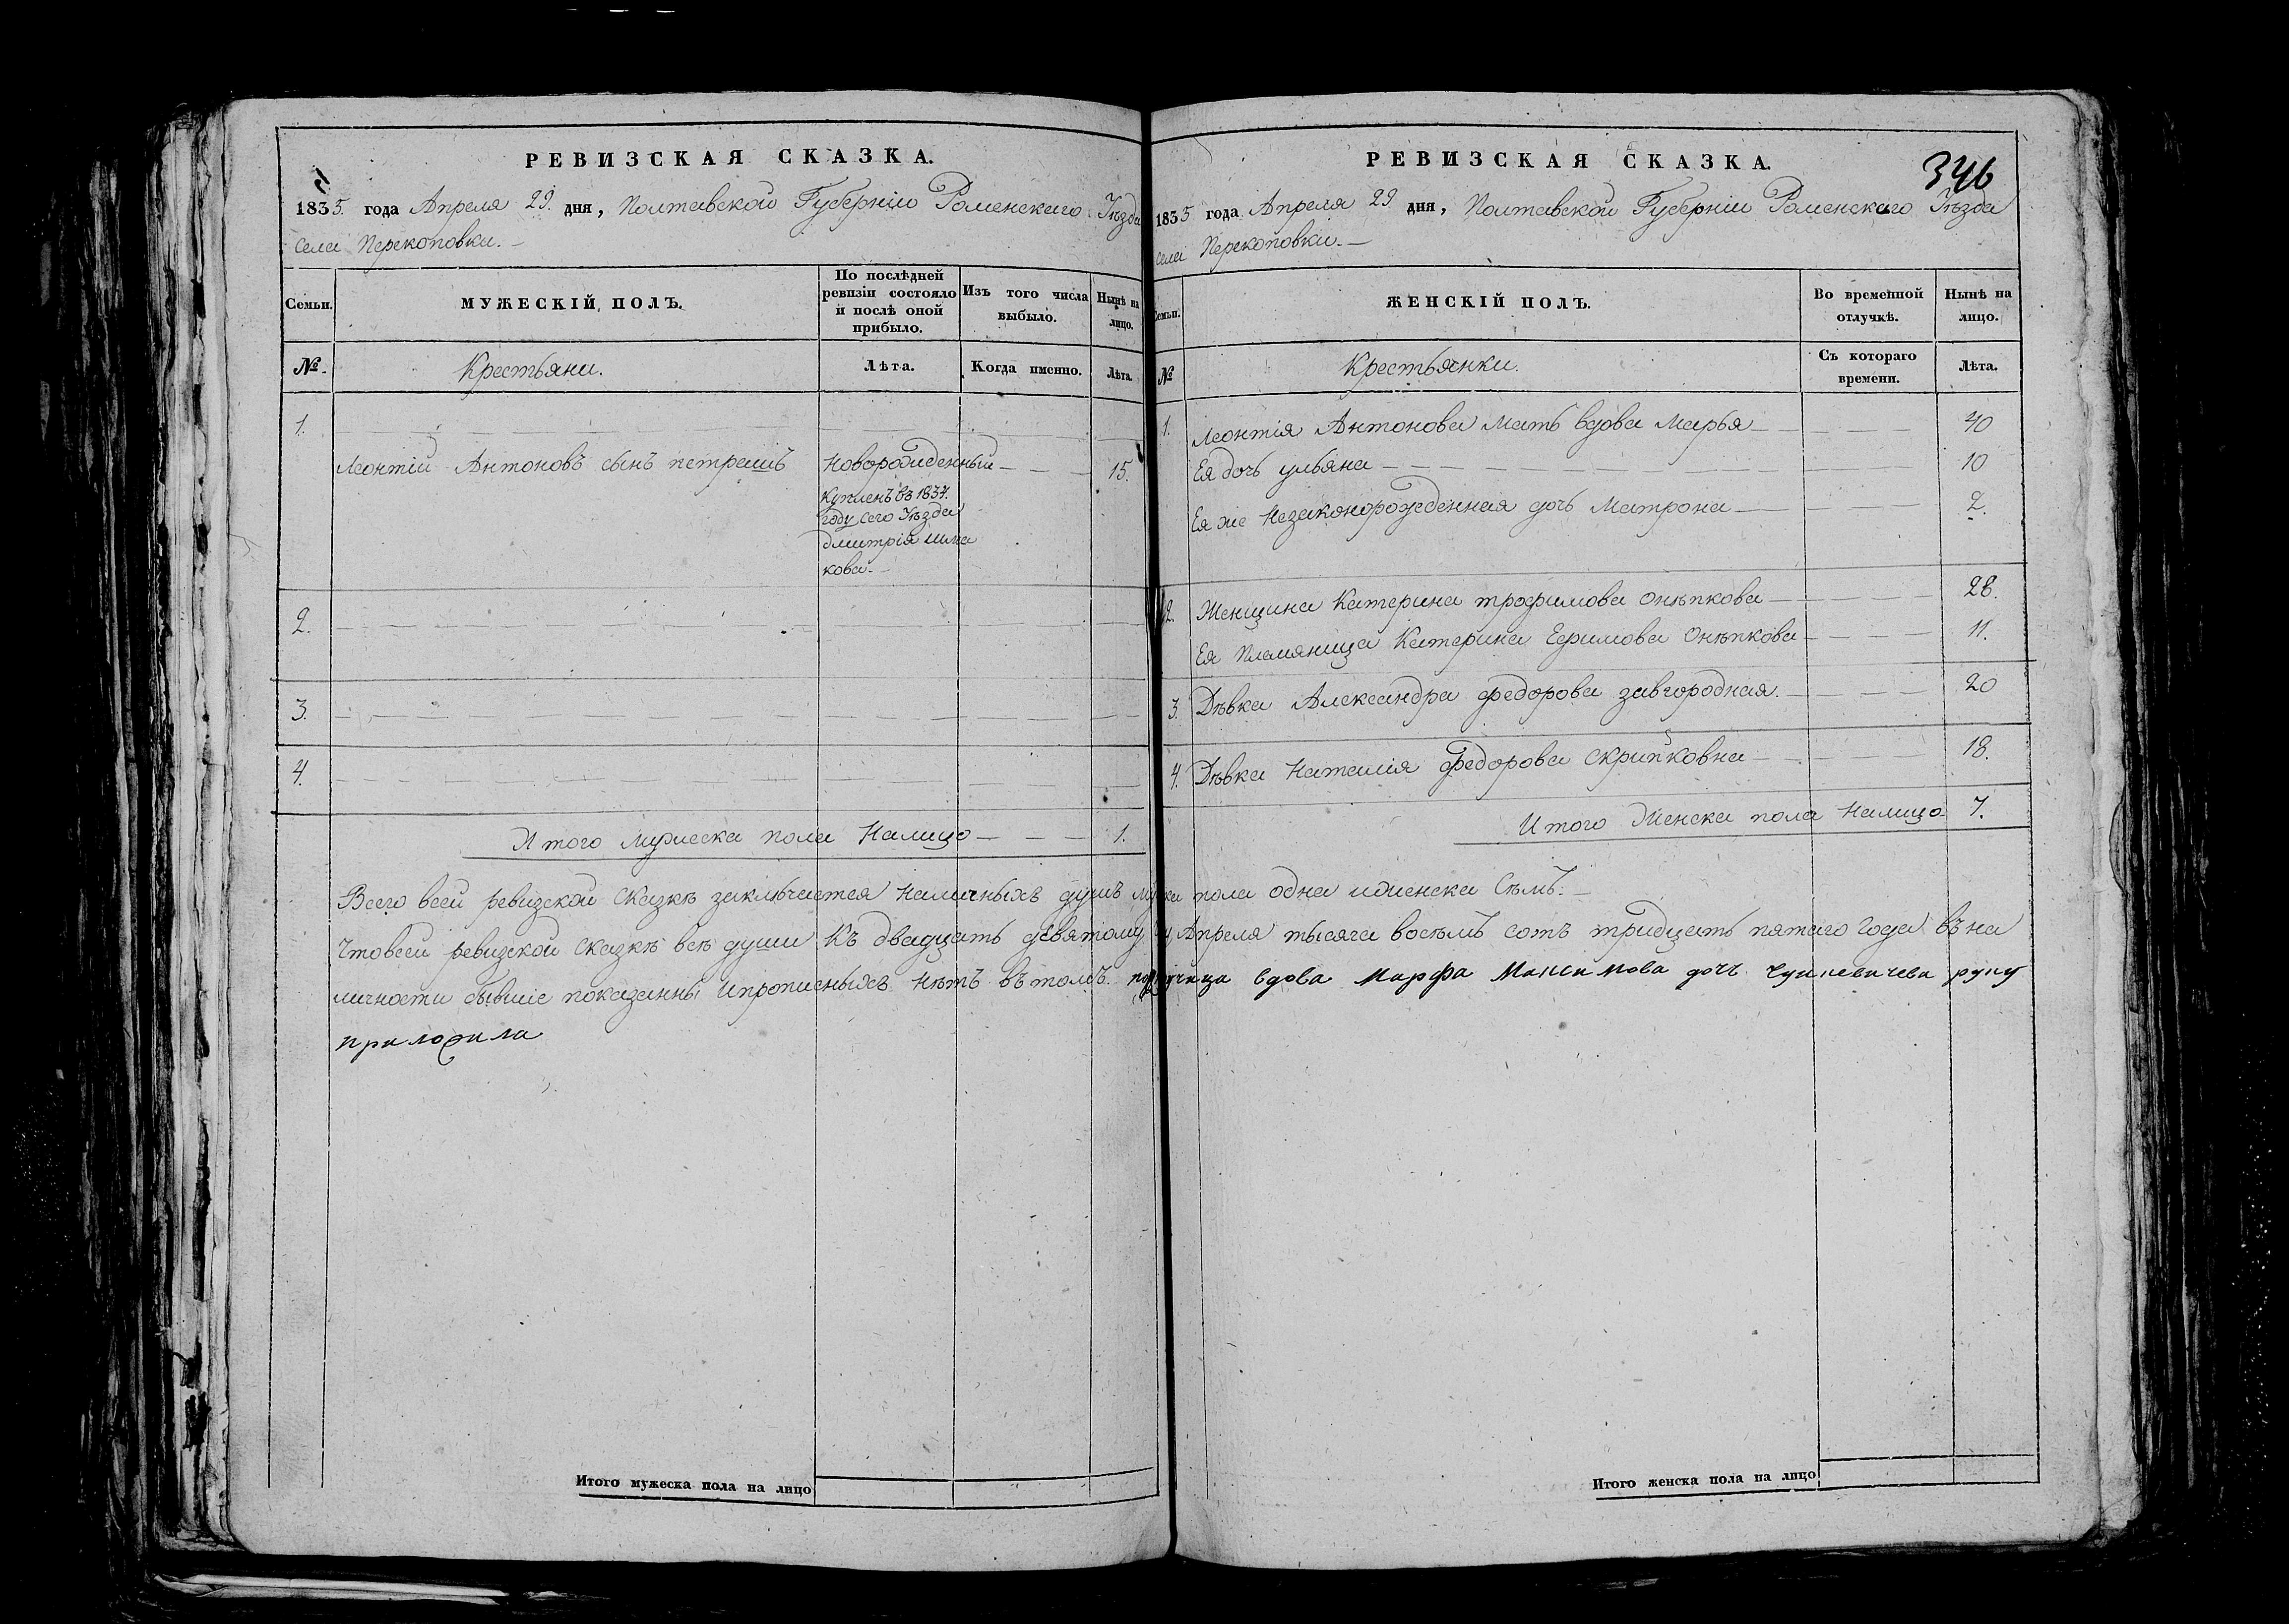 РЕВИЗСКАЯ СКАЗКА.
1835. года Апреля 29. дня, Полтавской Губерніи Роменскаго Уѣзда
села Перекоповки.
Семьи.
МУЖЕСКІЙ ПОЛЪ.
По послѣдней ревизіи состояло и послѣ оной прибыло.
Изъ того числа выбыло.
Нынѣ на лицо.
№
Крестьяни.
Лѣта.
Когда именно.
Лѣта.
1.
Леонтій Антоновъ сынъ петрашъ Новорожденный 15.
Купленъ въ 1837.
году сего Уѣзда
дмитрія
кова.
2.
3.
4.
Итого мужеска пола Налицо 1.
РЕВИЗСКАЯ СКАЗКА.
346
1835 года Апреля 29 дня, Полтавской Губерніи Роменскаго Уѣзда
села Перекоповки.
Семьи.
ЖЕНСКІЙ ПОЛЪ.
Во временной отлучкѣ.
Нынѣ на лицо.
№
Крестьянки.
Съ котораго времени.
Лѣта.
1. Леонтія Антонова мать вдова Марья 40
Ея дочь ульяна 10
Ея же Незаконорожденная дочь Матрона 2.
2. Женщина Катерина трофимова онѣпкова 28.
Ея племяница Катерина Ефимова Онѣпкова 11.
3. Дѣвка Александра федорова завгородная. 20
4. Дѣвка Наталія федорова скрипковна 18.
Итого Женска пола Налицо 7.
Всего всей ревизской Сказкѣ заключается Наличныхъ душъ мужска пола одна иженска Сѣмъ.
Чтовсей ревизской сказкѣ всѣ души Къ двадцать девятому Апреля тысяча восѣмъ сотъ тридцать пятаго года въна
личности бывшіе показанны ипрописныхъ нѣтъ вътомъ поручица вдова Марфа Максимова дочь руку
приложила
Итого мужеска пола на лицо
Итого женска пола на лицо